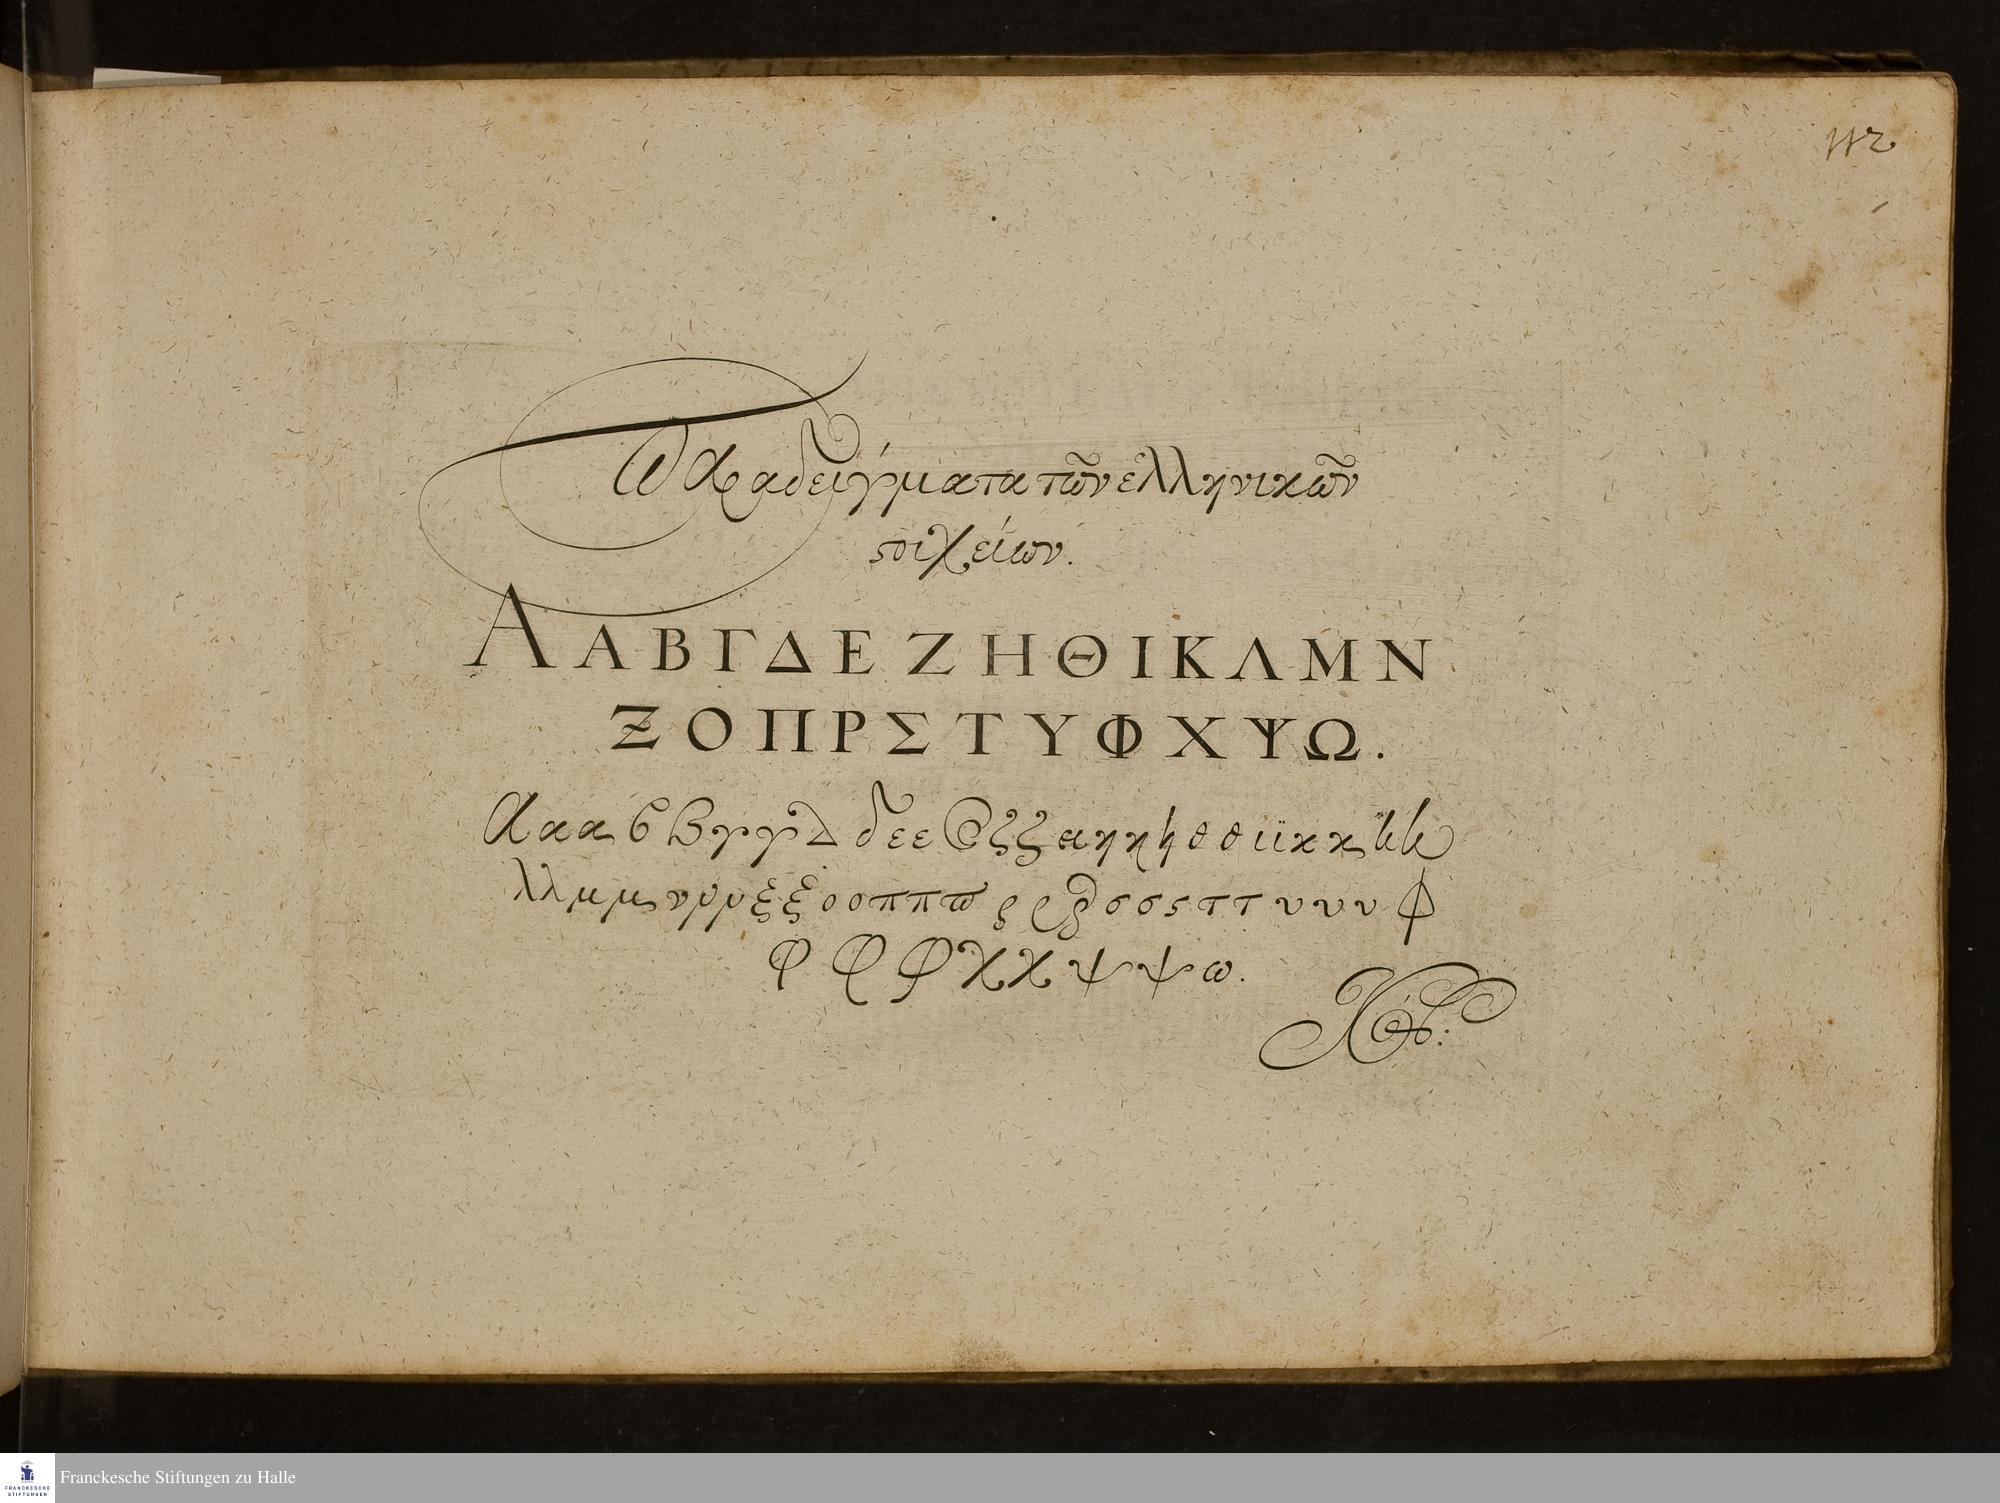 112
Παραδείγματα τῶν ἑλληνικῶν
ϛοιχείων.
Α Α Β Γ Δ Ε Ζ Η Θ Ι Κ Λ Μ Ν
Ξ Ο Π Ρ Σ Τ Υ Φ Χ Ψ Ω.
α α α β β γ γ Δ δ ε ε ζ ζ η η η θ θ ι ϊ κ κ κ κ
λ λ μ μ ν ν ν ξ ξ ο ο π π ϖ ρ ρ σ σ ς τ τ υ υ υ φ
φ φ φ χ χ ψ ψ ω.
Franckesche Stiftungen zu Halle
FRANCKESCHE
STIFTUNGEN